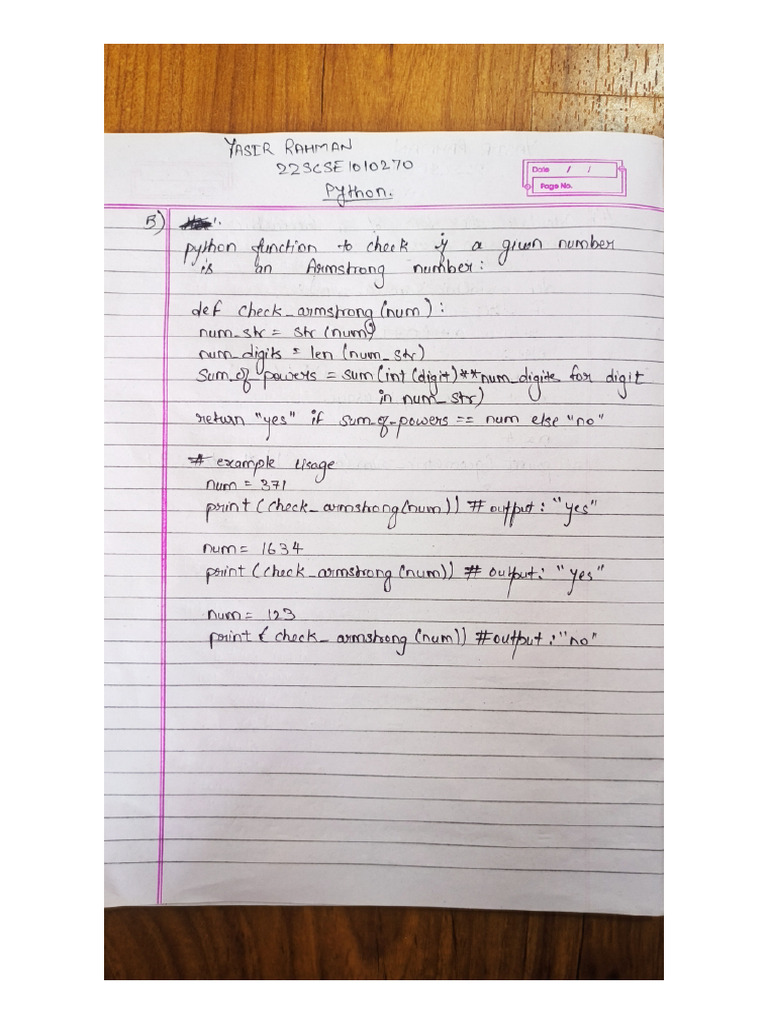 YASIR RAHMAN
22SCSE1010270
Python.
Date / /
Page No.
5)
python function to check if a given number
is an Armstrong number:
def check_armstrong(num):
num_str = str(num)
num_digits = len(num_str)
sum_of_powers = sum(int(digit)**num_digits for digit
in num_str)
return "yes" if sum_of_powers == num else "no"
# example usage
num = 371
print(check_armstrong(num)) # output: "yes"
num = 1634
print(check_armstrong(num)) # output: "yes"
num = 123
print(check_armstrong(num)) # output: "no"